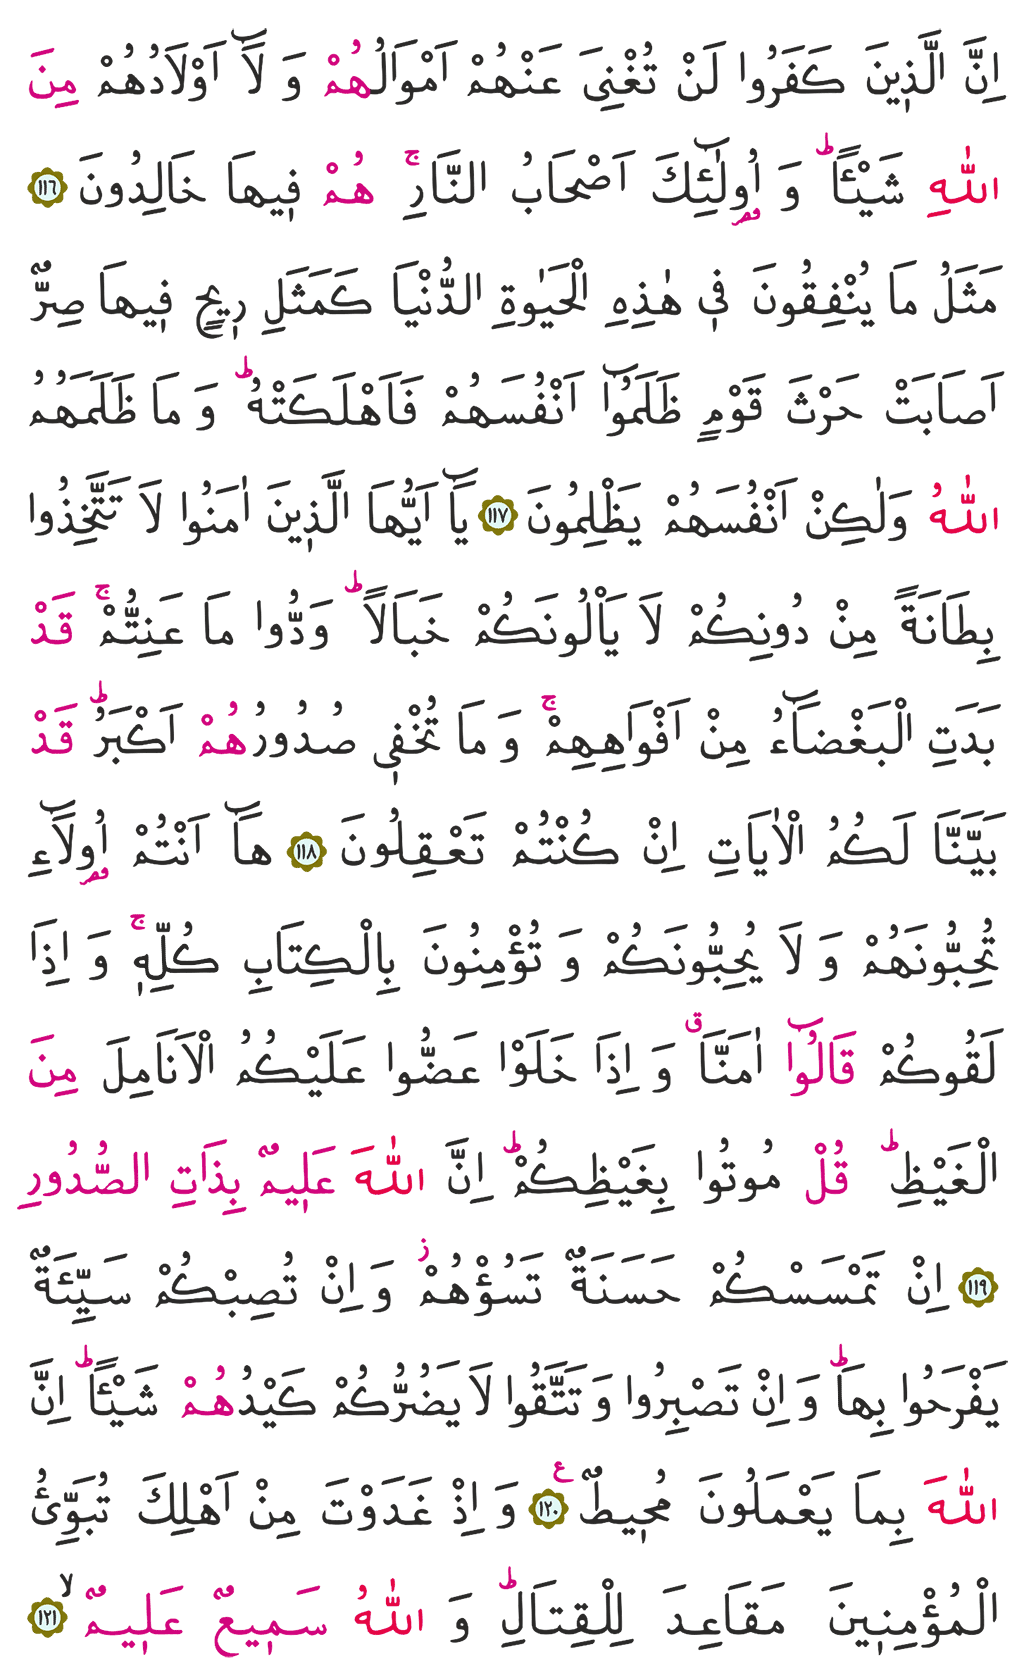 اِنَّ الَّذٖينَ كَفَرُوا لَنْ تُغْنِىَ عَنْهُمْ اَمْوَالُهُمْ وَ لَٓا اَوْلَادُهُمْ مِنَ
اللّٰهِ شَيْـًٔاؕ وَ اُو۬لٰٓئِكَ اَصْحَابُ النَّارِۚ هُمْ فٖيهَا خَالِدُونَ ﴿١١٦﴾
مَثَلُ مَا يُنْفِقُونَ فٖى هٰذِهِ الْحَيٰوةِ الدُّنْيَا كَمَثَلِ رٖيحٍ فٖيهَا صِرٌّ
اَصَابَتْ حَرْثَ قَوْمٍ ظَلَمُٓوا اَنْفُسَهُمْ فَاَهْلَكَتْهُؕ وَ مَا ظَلَمَهُمُ
اللّٰهُ وَلٰكِنْ اَنْفُسَهُمْ يَظْلِمُونَ ﴿١١٧﴾ يَٓا اَيُّهَا الَّذٖينَ اٰمَنُوا لَا تَتَّخِذُوا
بِطَانَةً مِنْ دُونِكُمْ لَا يَاْلُونَكُمْ خَبَالًاؕ وَدُّوا مَا عَنِتُّمْۚ قَدْ
بَدَتِ الْبَغْضَٓاءُ مِنْ اَفْوَاهِهِمْۚ وَ مَا تُخْفٖى صُدُورُهُمْ اَكْبَرُؕ قَدْ
بَيَّنَّا لَكُمُ الْاٰيَاتِ اِنْ كُنْتُمْ تَعْقِلُونَ ﴿١١٨﴾ هَٓا اَنْتُمْ اُو۬لَٓاءِ
تُحِبُّونَهُمْ وَ لَا يُحِبُّونَكُمْ وَ تُؤْمِنُونَ بِالْكِتَابِ كُلِّهٖۚ وَ اِذَا
لَقُوكُمْ قَالُٓوا اٰمَنَّاۗ وَ اِذَا خَلَوْا عَضُّوا عَلَيْكُمُ الْاَنَامِلَ مِنَ
الْغَيْظِؕ قُلْ مُوتُوا بِغَيْظِكُمْؕ اِنَّ اللّٰهَ عَلٖيمٌ بِذَاتِ الصُّدُورِ
﴿١١٩﴾ اِنْ تَمْسَسْكُمْ حَسَنَةٌ تَسُؤْهُمْؗ وَ اِنْ تُصِبْكُمْ سَيِّئَةٌ
يَفْرَحُوا بِهَاؕ وَ اِنْ تَصْبِرُوا وَ تَتَّقُوا لَا يَضُرُّكُمْ كَيْدُهُمْ شَيْـًٔاؕ اِنَّ
اللّٰهَ بِمَا يَعْمَلُونَ مُحٖيطٌ ﴿١٢٠﴾ ع وَ اِذْ غَدَوْتَ مِنْ اَهْلِكَ تُبَوِّئُ
الْمُؤْمِنٖينَ مَقَاعِدَ لِلْقِتَالِؕ وَ اللّٰهُ سَمٖيعٌ عَلٖيمٌ ﴿١٢١﴾ۙ